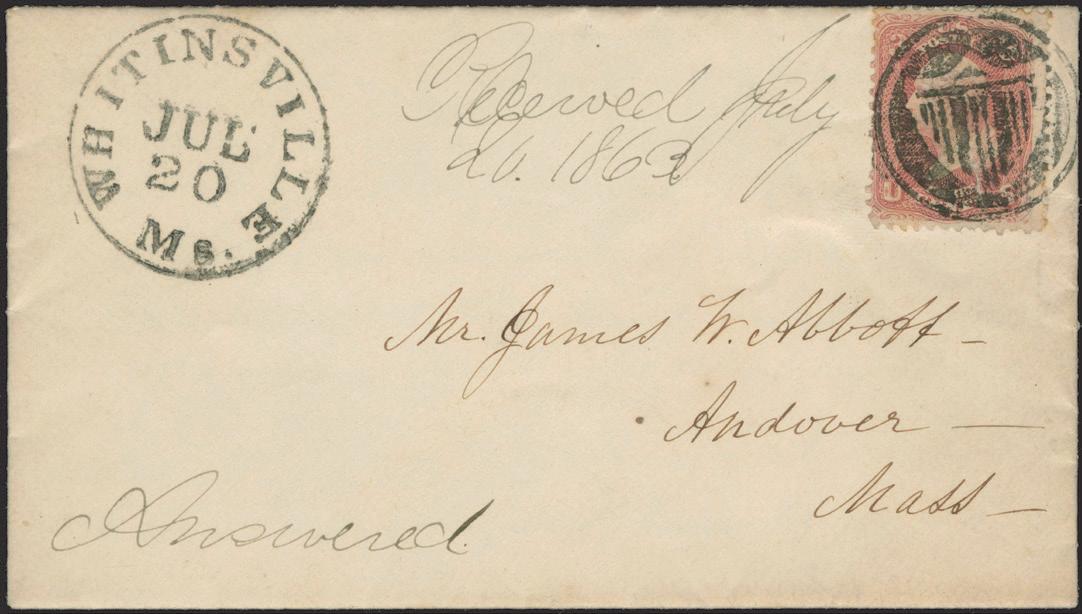 WHITINSVILLE
JUL
20
Ms.
Received July
20. 1863
Mr. James W. Abbott
Andover
Mass
Answered